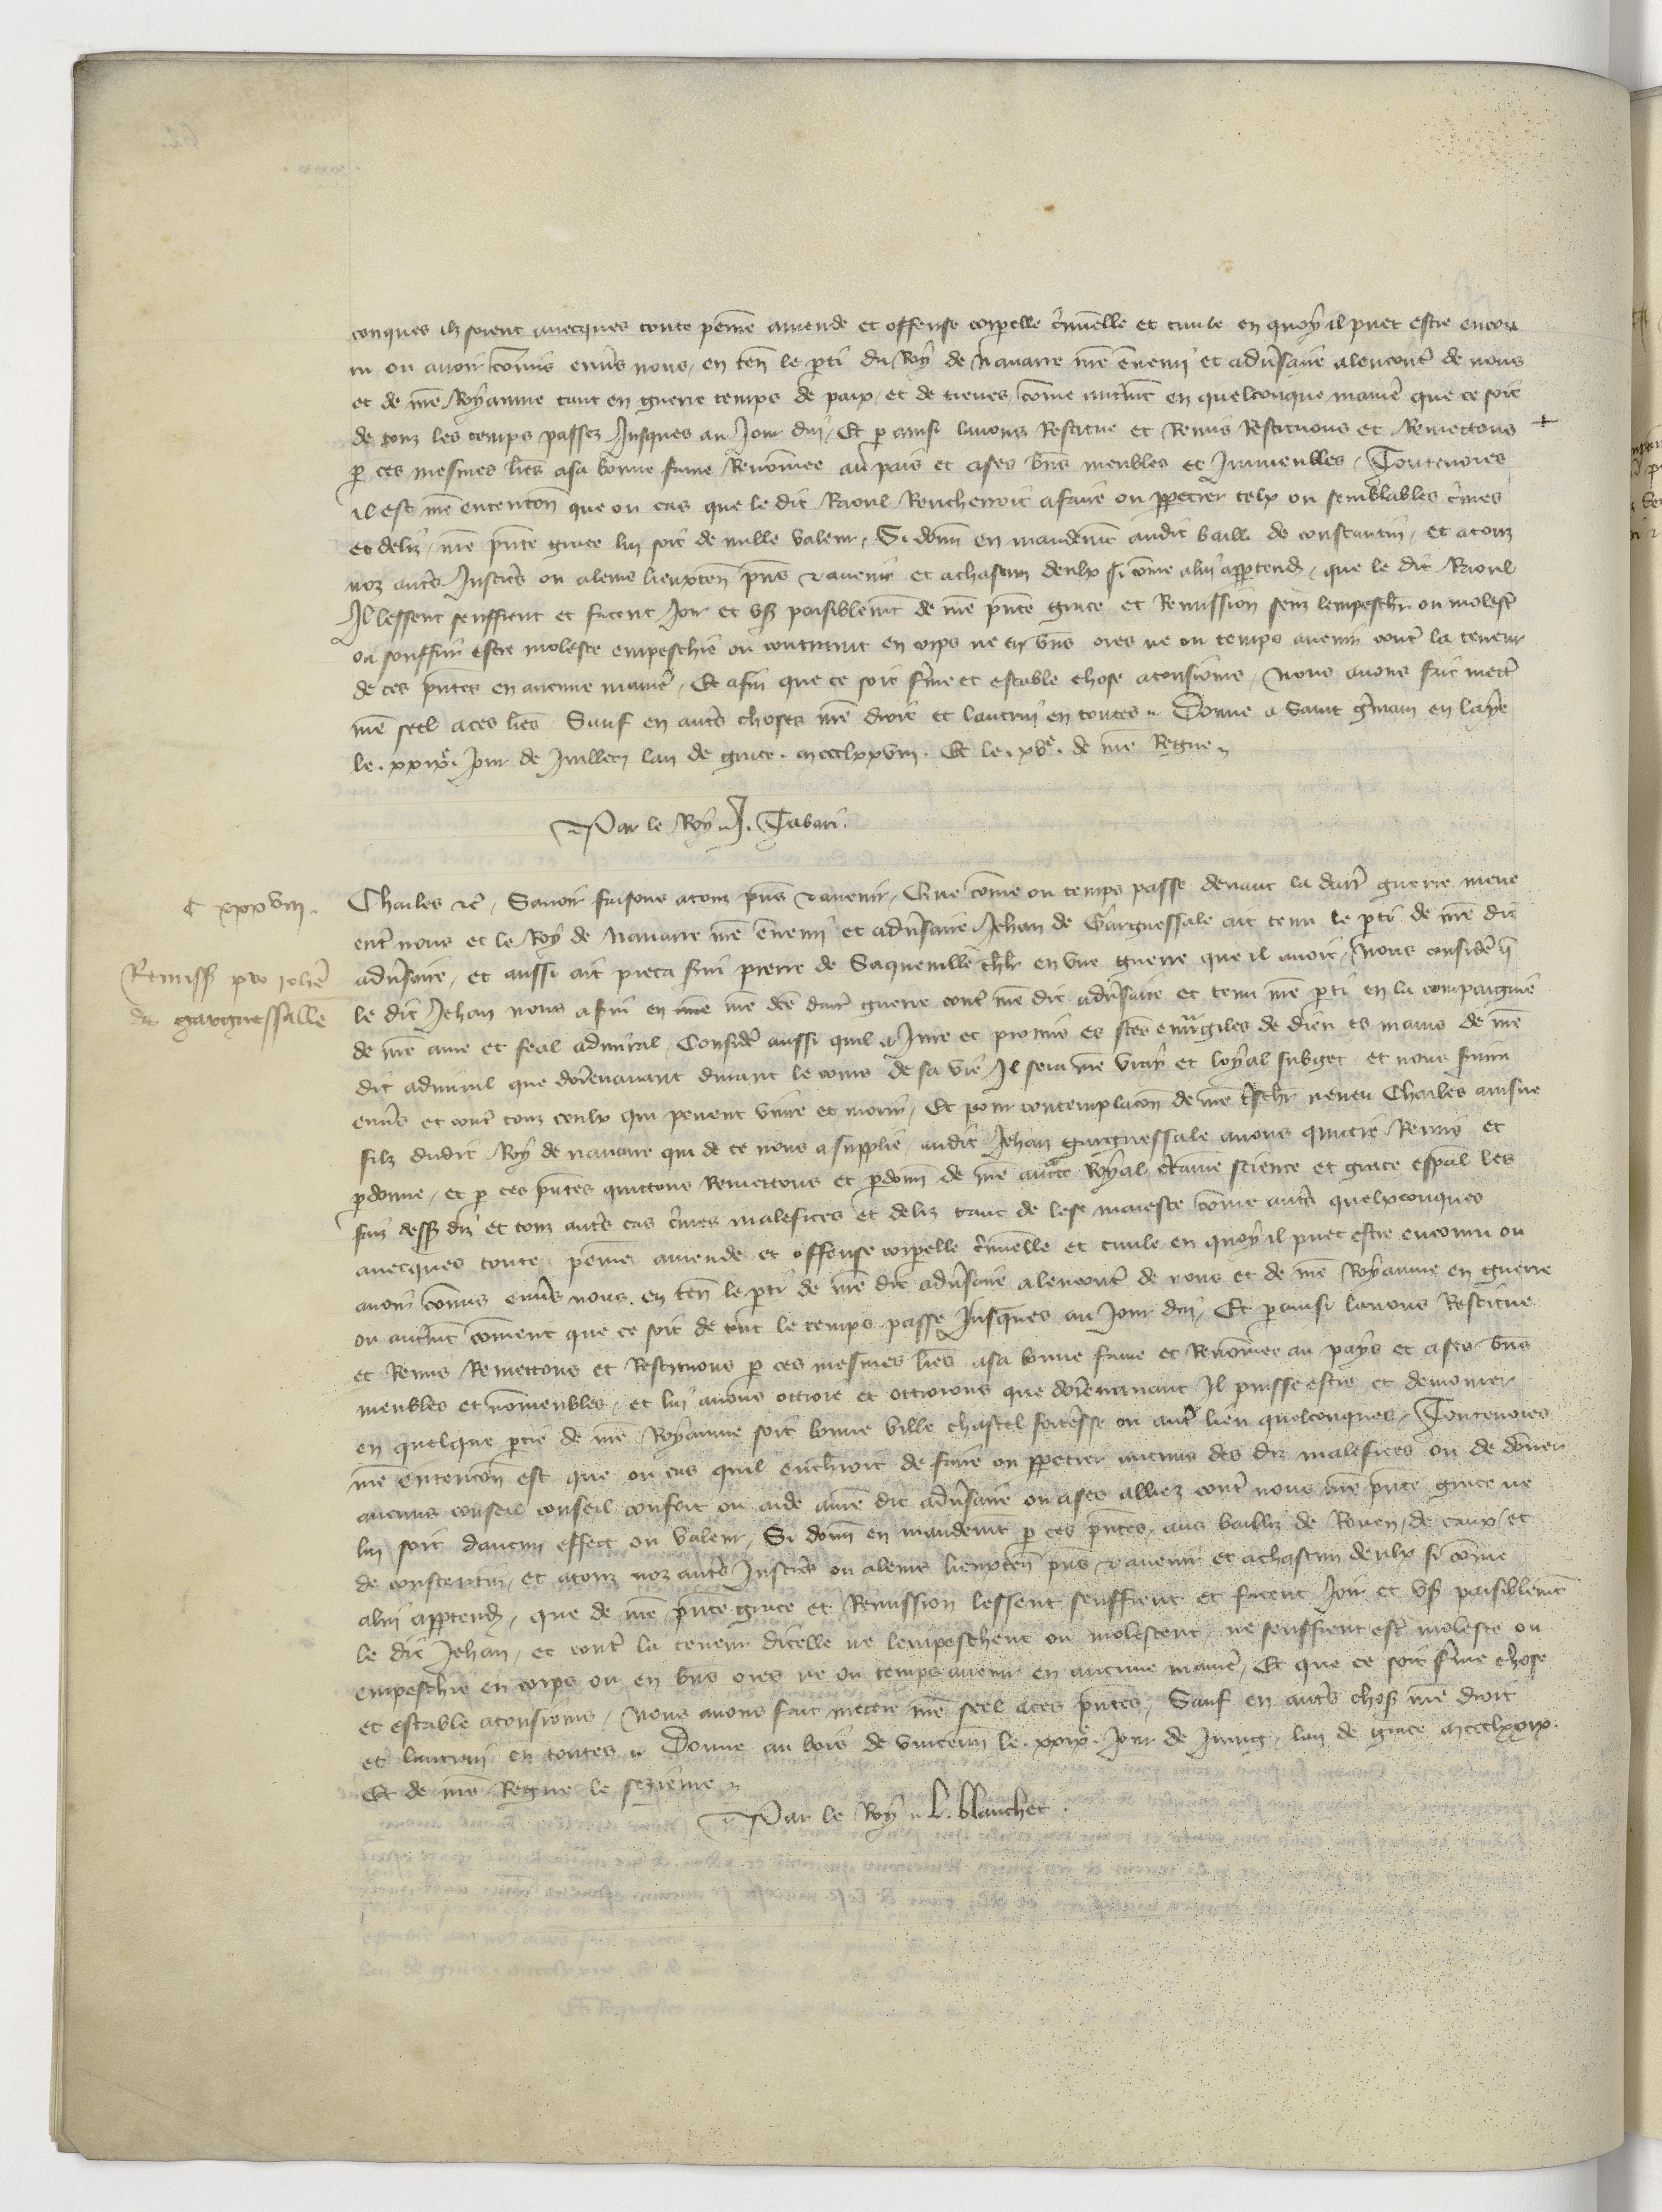 conques ilz soient avecques toute peine amende et offense corpelle c̃minelle et civile en quoy il puet estre encou
ru ou avoir com̃is env̾s nous, en ten̄ le p̱ti du Roy de Navarre nr̃e ennemi et adv̾saire alencont̾ de nous
et de nr̃e Royaume tant en guerre temps de paix, et de treves, com̃e autrem̃t en quelconque manie͛ que ce soit
de touz les temps passez Jusques au Jour dui, Et p̱ ainsi lavons Restitue et Remis Restituons et Remettons +
p̱ ces mesmes lr̃es a sa bonne fame Renom̃ee au païs et a ses bñs meubles et Jmmeubles, Toutevoies
il est nr̃e entencion̄ que ou cas que le dit Raoul Rencherroit a faire ou p̱petrer telx ou semblables c̃mes
et deliz, nr̃e p̃nte grace lui soit de nulle valeur, Si donn̄ en mandem̃t audit bailli de constantin, et a touz
noz aut̾s Justic̾s ou a leurs lieuxten̄ p̃ns & avenir et a chascun deulx si com̃e a lui app̱tend̾, que le dit Raoul
Il lessent seuffrent et facent Joir et us̾ paisiblem̃t de nr̃e p̃nte grace et Remission senz lempesch̾ ou molest̾
ou souffrir estre moleste empeschie ou contraint en corps ne en bñs ores ne ou temps avenir cont̾ la teneur
de ces p̃ntes en aucune manie͛, Et afin que ce soit f̾me et estable chose a tousjours, Nous avons fait mett̾
nr̃e seel a ces lr̃es, Sauf en aut̾s choses nr̃e droit et lautrui en toutes, Donne a Saint G̾main en Laye
le .xxix͛. Jour de Juillet, lan de grace .mccclxxviii. Et le .xv͛. de nr̃e Regne
Par le Roy J. Tabari.
C xxxviii.
Remiss̾ pro joh̃e
de garguessalle
Charles &c̃, Savoir faisons a touz p̃ns & avenir, Que com̃e ou temps passe devant la darr̾ guerre meue
ent̾ nous et le Roy de Navarre nr̃e ennemi et adv̾saire Jehan de Garguessale ait tenu le p̱ti de nr̃e dit
adv̾saire, et aussi ait pieca s̾vi pierre de Saquenville chlr̃ en une guerre que il avoit, Nous considere q̃
le dit Jehan nous a s̾vi en nr̃e dc̃e darr̾ guerre cont̾ nr̃e dit adv̾saire et tenu nr̃e p̱ti en la compaignie
de nr̃e ame et feal admiral, Considere aussi quil a Jure et promis es stẽs euvangiles de dieu es mains de nr̃e
dit admiral que dorenavant durant le cours de sa vie Il sera nr̃e vray et loyal subget et nous s̾vira
env̾s et cont̾ touz ceulx qui pevent vivre et morir, Et pour contemplacion̄ de nr̃e t̾sch̾ neveu Charles ainsne
filz dudit Roy de navarre qui de ce nous a supplie, audit Jehan garguessale avons quittie Remis et
p̱donne, et p̱ ces p̃ntes quittons Remettons et p̱donn̄ de nr̃e auct̃e Royal c̾taine science et grace esp̃al les
faiz dess̾ diz et touz aut̾s cas c̃mes malefices et deliz tant de lese maieste com̃e aut̾s quelxconques
avecques toute peine amende et offense corpelle c̃minelle et civile en quoy il puet estre encouru ou
avoir com̃is env̾s nous, en ten̄ le p̱ti de nr̃e dit adv̾saire alencont̾ de nous et de nr̃e Royaume en guerre
ou autrem̃t com̃ent que ce soit de tout le temps passe Jusques au Jour dui, Et p̱ ainsi lavons Restitue
et Remis Remettons et Restituons p̱ ces mesmes lr̃es a sa bonne fame et Renom̃ee au pays et a ses bñs
meubles et nom̃eubles, et lui avons ottroie et ottroions que dorenavant Il puisse estre et demourer
en quelque p̱tie de nr̃e Royaume soit bonne ville chastel forteresse ou aut̾ lieu quelconques, Toutevoies
nr̃e entencion̄ est que ou cas quil encherroit de faire ou p̱petrer aucuns des diz malefices ou de donner
aucuns conseil conseil confort ou aide a nr̃e dit adv̾saire ou a ses alliez cont̾ nous nr̃e p̃nte grace ne
lui soit daucun effect ou valeur, Si donn̄ en mandem̃t p̱ ces p̃ntes, aus bailliz de Rouen, de caux, et
de constentin, et a touz noz aut̾s Justic̾s ou a leurs lieuxten̄ p̃ns & avenir et a chascun deulx si com̃e
a lui app̱tend̾, que de nr̃e p̃nte grace et Remission lessent seuffrent et facent Joir et us̾ paisiblem̃t
le dit Jehan, et cont̾ la teneur dicelle ne lempeschent ou molestent, ne seuffrent est̾ moleste ou
empeschie en corps ou en bñs ores ne ou temps avenir en aucune manie͛, Et que ce soit f̾me chose
et estable a tousjours, Nous avons fait mettre nr̃e seel a ces p̃ntes, Sauf en aut̾s chos̾ nr̃e droit
et lautrui en toutes, Donne au bois de vincenn̄ le .xxix͛. Jour de Juing, lan de grace mccclxxix.
Et de nr̃e Regne le sezieme
Par le Roy L. blanchet.